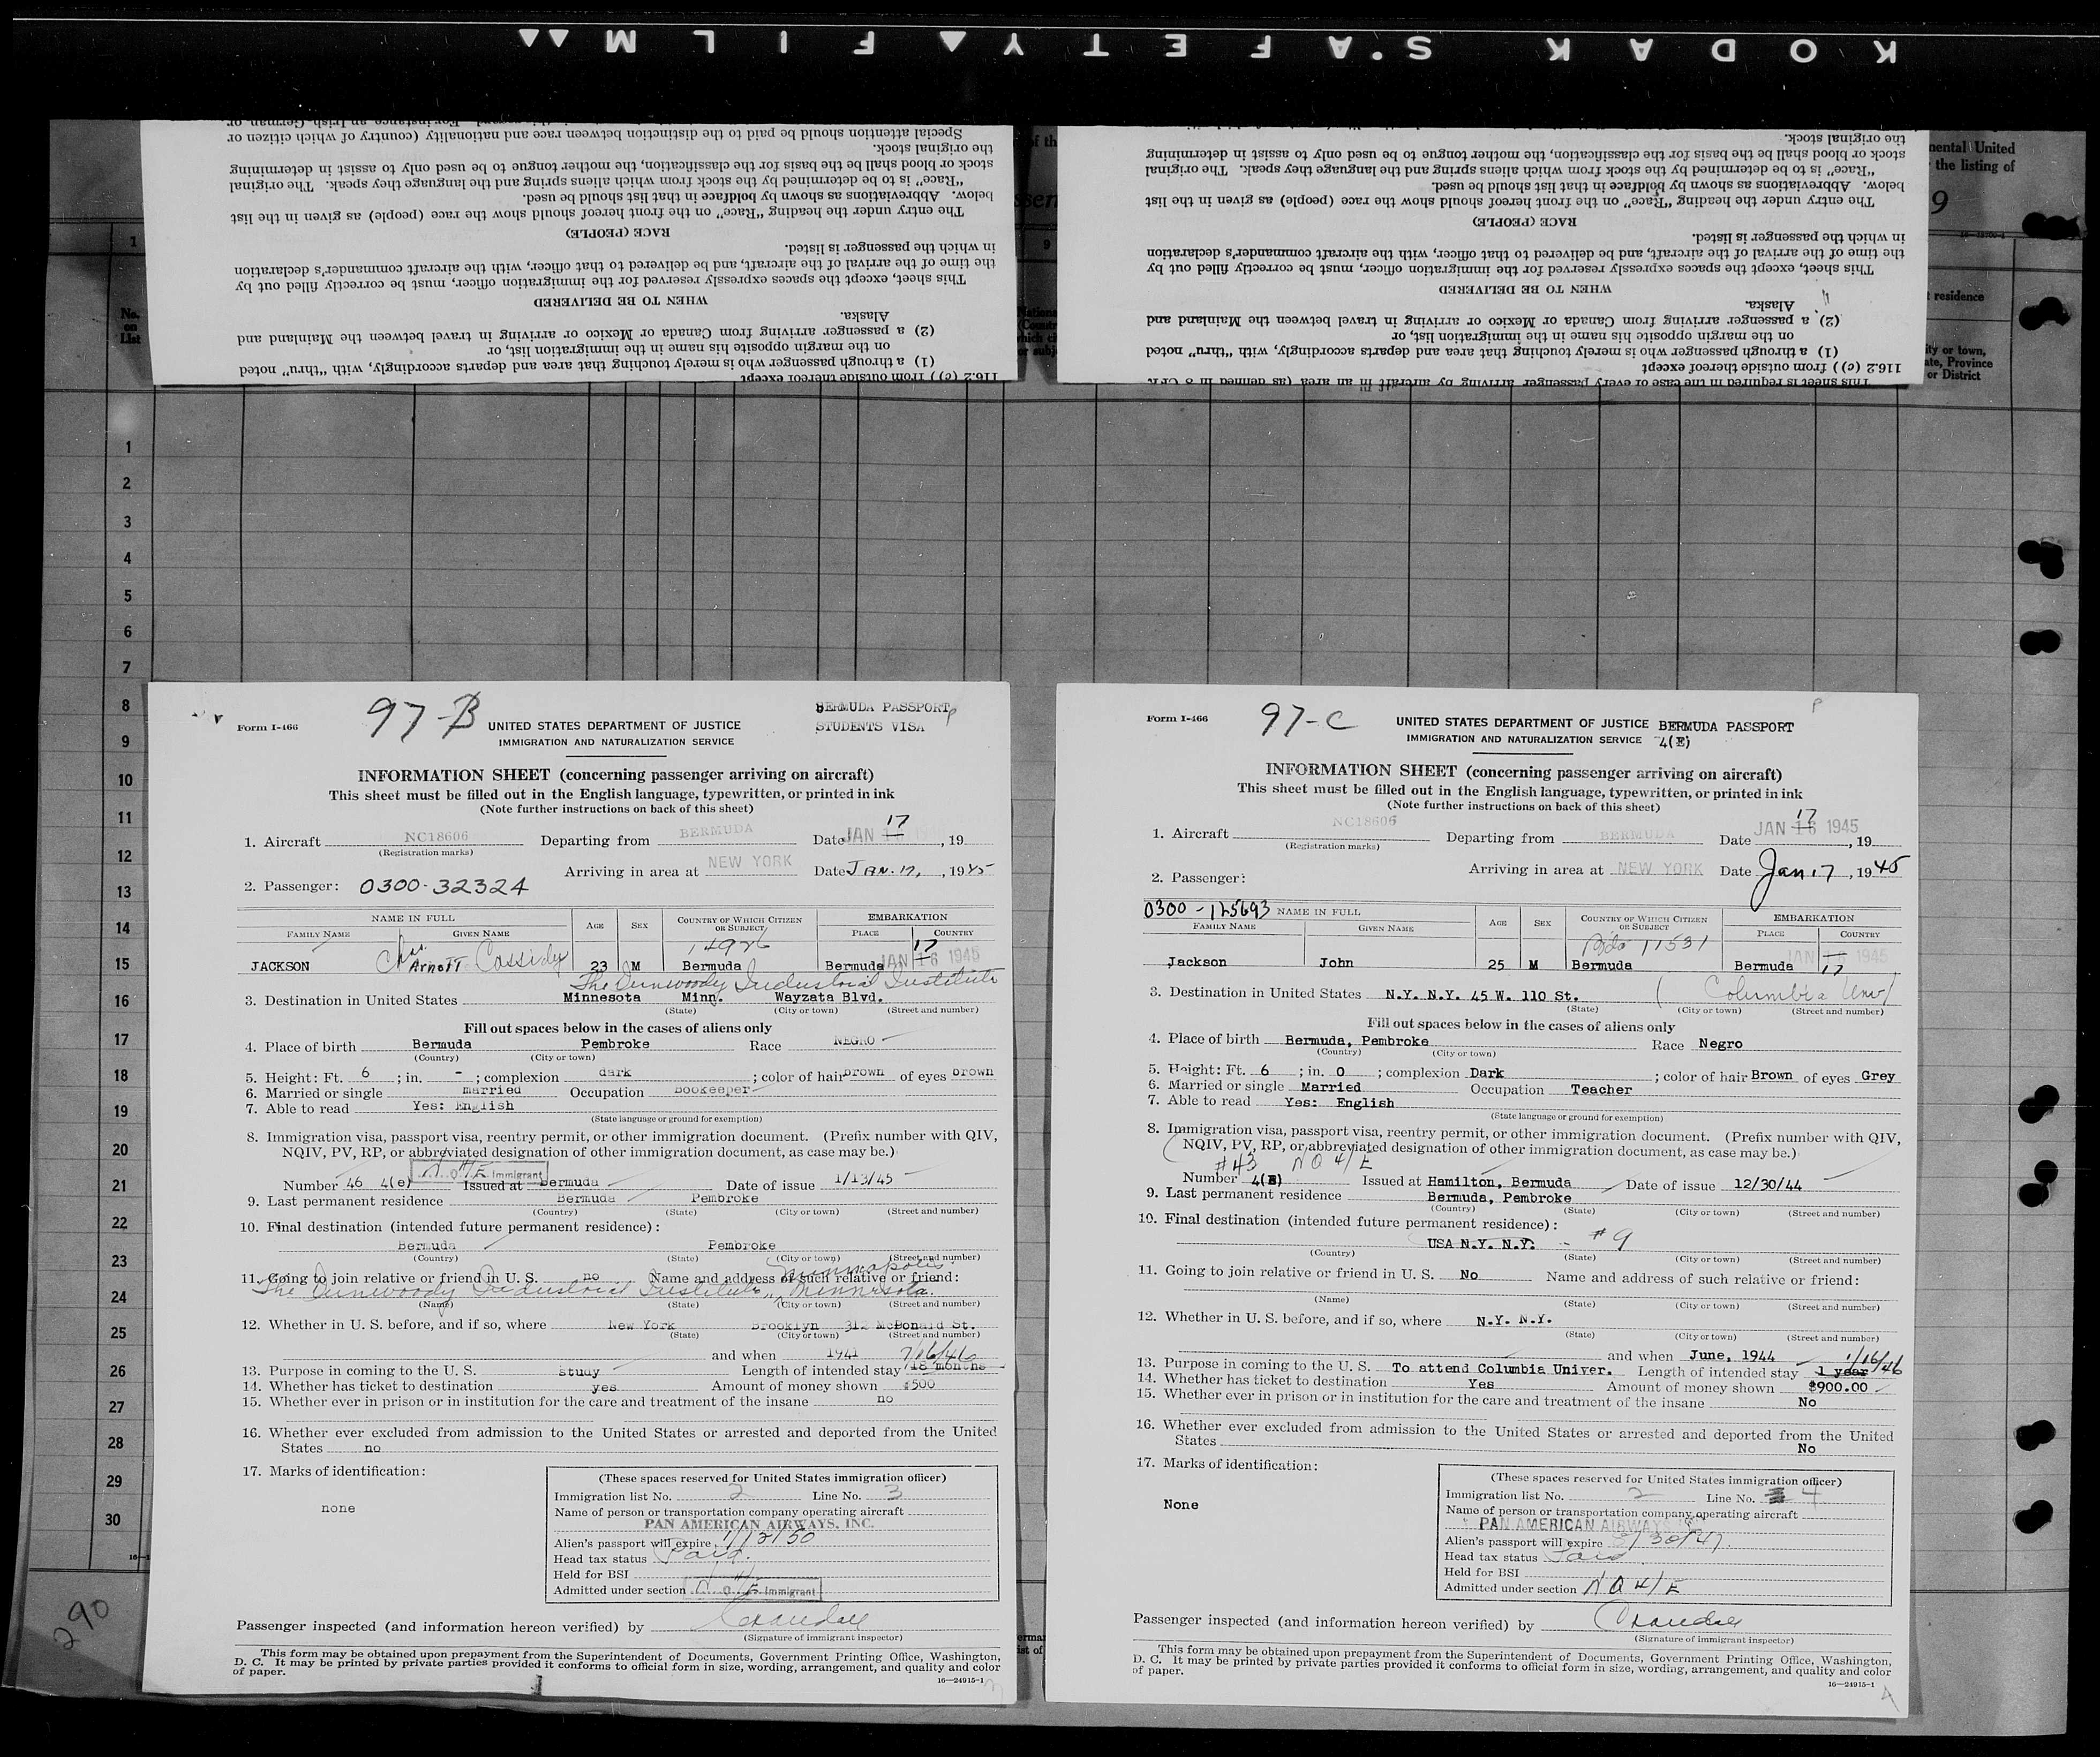 KODAK SAFETY FILM
Special attention should be paid to the distinction between race and nationality (country of which citizen or
the original stock.
stock or blood shall be the basis for the classification, the mother tongue to be used only to assist in determining
"Race" is to be determined by the stock from which aliens spring and the language they speak. The original
below. Abbreviations as shown by boldface in that list should be used.
The entry under the heading "Race" on the front hereof should show the race (people) as given in the list
RACE (PEOPLE)
in which the passenger is listed.
the time of the arrival of the aircraft, and be delivered to that officer, with the aircraft commander's declaration
This sheet, except the spaces expressly reserved for the immigration officer, must be correctly filled out by
WHEN TO BE DELIVERED
Alaska.
(2) a passenger arriving from Canada or Mexico or arriving in travel between the Mainland and
on the margin opposite his name in the immigration list, or
(1) a through passenger who is merely touching that area and departs accordingly, with "thru" noted
116.2 (c)) from outside thereof except
the original stock.
stock or blood shall be the basis for the classification, the mother tongue to be used only to assist in determining
"Race" is to be determined by the stock from which aliens spring and the language they speak. The original
below. Abbreviations as shown by boldface in that list should be used.
The entry under the heading "Race" on the front hereof should show the race (people) as given in the list
RACE (PEOPLE)
in which the passenger is listed.
the time of the arrival of the aircraft, and be delivered to that officer, with the aircraft commander's declaration
This sheet, except the spaces expressly reserved for the immigration officer, must be correctly filled out by
WHEN TO BE DELIVERED
Alaska.
(2) a passenger arriving from Canada or Mexico or arriving in travel between the Mainland and
on the margin opposite his name in the immigration list, or
(1) a through passenger who is merely touching that area and departs accordingly, with "thru" noted
116.2 (c)) from outside thereof except
This sheet is required in the case of every passenger arriving by aircraft in an area (as defined in 8 CFR
United
the listing of
9
1
9
No.
on
List
residence
or District
1
2
3
4
5
6
7
8
9
10
11
12
13
14
15
16
17
18
19
20
21
22
23
24
25
26
27
28
29
30
290
Form I-466
97-B
UNITED STATES DEPARTMENT OF JUSTICE
IMMIGRATION AND NATURALIZATION SERVICE
BERMUDA PASSPORT
STUDENTS VISA
INFORMATION SHEET (concerning passenger arriving on aircraft)
This sheet must be filled out in the English language, typewritten, or printed in ink
(Note further instructions on back of this sheet)
1. Aircraft NC18606 Departing from BERMUDA Date JAN 17, 19
(Registration marks)
Arriving in area at NEW YORK Date JAN. 17, 1945
2. Passenger: 0300-32324
NAME IN FULL AGE SEX COUNTRY OF WHICH CITIZEN OR SUBJECT EMBARKATION
FAMILY NAME GIVEN NAME PLACE COUNTRY
14926
JACKSON Arnott Cassidy 23 M Bermuda Bermuda JAN 17 1945
The Dunwoody Industrial Institute
3. Destination in United States Minnesota Minn. Wayzata Blvd.
(State) (City or town) (Street and number)
Fill out spaces below in the cases of aliens only
4. Place of birth Bermuda Pembroke Race NEGRO
(Country) (City or town)
5. Height: Ft. 6; in. -; complexion dark; color of hair brown of eyes brown
6. Married or single married Occupation bookeeper
7. Able to read Yes: English
(State language or ground for exemption)
8. Immigration visa, passport visa, reentry permit, or other immigration document. (Prefix number with QIV,
NQIV, PV, RP, or abbreviated designation of other immigration document, as case may be.)
Number 46 4(e) Issued at Bermuda Date of issue 1/13/45
Immigrant
9. Last permanent residence Bermuda Pembroke
(Country) (State) (City or town) (Street and number)
10. Final destination (intended future permanent residence):
Bermuda Pembroke
(Country) (State) (City or town) (Street and number)
11. Going to join relative or friend in U. S. no Name and address of such relative or friend:
The Dunwoody Industrial Institute, Minneapolis Minnesota.
(Name) (State) (City or town) (Street and number)
12. Whether in U. S. before, and if so, where New York Brooklyn 312 McDonald St.
(State) (City or town) (Street and number)
and when 1941 7/16/46
13. Purpose in coming to the U. S. study Length of intended stay 18 months
14. Whether has ticket to destination yes Amount of money shown $500
15. Whether ever in prison or in institution for the care and treatment of the insane no
16. Whether ever excluded from admission to the United States or arrested and deported from the United
States no
17. Marks of identification:
none
(These spaces reserved for United States immigration officer)
Immigration list No. 2 Line No. 3
Name of person or transportation company operating aircraft
PAN AMERICAN AIRWAYS, INC.
Alien's passport will expire 1/12/50
Head tax status Paid.
Held for BSI
Admitted under section N.Q. 4/E Immigrant
Passenger inspected (and information hereon verified) by Crandall
(Signature of immigrant inspector)
This form may be obtained upon prepayment from the Superintendent of Documents, Government Printing Office, Washington,
D. C. It may be printed by private parties provided it conforms to official form in size, wording, arrangement, and quality and color
of paper.
16—24915-1
Form I-466
97-C
UNITED STATES DEPARTMENT OF JUSTICE BERMUDA PASSPORT
IMMIGRATION AND NATURALIZATION SERVICE 4(E)
INFORMATION SHEET (concerning passenger arriving on aircraft)
This sheet must be filled out in the English language, typewritten, or printed in ink
(Note further instructions on back of this sheet)
1. Aircraft NC18606 Departing from BERMUDA Date JAN 16 17 1945, 19
(Registration marks)
Arriving in area at NEW YORK Date Jan. 17, 1945
2. Passenger:
0300-125693 NAME IN FULL AGE SEX COUNTRY OF WHICH CITIZEN OR SUBJECT EMBARKATION
FAMILY NAME GIVEN NAME PLACE COUNTRY
11531
Jackson John 25 M Bermuda Bermuda JAN 17 1945
3. Destination in United States N.Y. N.Y. 45 W. 110 St. (Columbia Univ)
(State) (City or town) (Street and number)
Fill out spaces below in the cases of aliens only
4. Place of birth Bermuda, Pembroke Race Negro
(Country) (City or town)
5. Height: Ft. 6; in. 0; complexion Dark; color of hair Brown of eyes Grey
6. Married or single Married Occupation Teacher
7. Able to read Yes: English
(State language or ground for exemption)
8. Immigration visa, passport visa, reentry permit, or other immigration document. (Prefix number with QIV,
NQIV, PV, RP, or abbreviated designation of other immigration document, as case may be.)
#43 NQ 4/E
Number 4(E) Issued at Hamilton, Bermuda Date of issue 12/30/44
9. Last permanent residence Bermuda, Pembroke
(Country) (State) (City or town) (Street and number)
10. Final destination (intended future permanent residence):
USA N.Y. N.Y. - #9
(Country) (State) (City or town) (Street and number)
11. Going to join relative or friend in U. S. No Name and address of such relative or friend:
(Name) (State) (City or town) (Street and number)
12. Whether in U. S. before, and if so, where N.Y. N.Y.
(State) (City or town) (Street and number)
and when June, 1944 1/16/46
13. Purpose in coming to the U. S. To attend Columbia Univer. Length of intended stay 1 year
14. Whether has ticket to destination Yes Amount of money shown $900.00
15. Whether ever in prison or in institution for the care and treatment of the insane No
16. Whether ever excluded from admission to the United States or arrested and deported from the United
States No
17. Marks of identification:
None
(These spaces reserved for United States immigration officer)
Immigration list No. 2 Line No. 4
Name of person or transportation company operating aircraft
PAN AMERICAN AIRWAYS
Alien's passport will expire /30/47.
Head tax status Paid
Held for BSI
Admitted under section NQ 4/E
Passenger inspected (and information hereon verified) by Crandall
(Signature of immigrant inspector)
This form may be obtained upon prepayment from the Superintendent of Documents, Government Printing Office, Washington,
D. C. It may be printed by private parties provided it conforms to official form in size, wording, arrangement, and quality and color
of paper.
16—24915-1
4